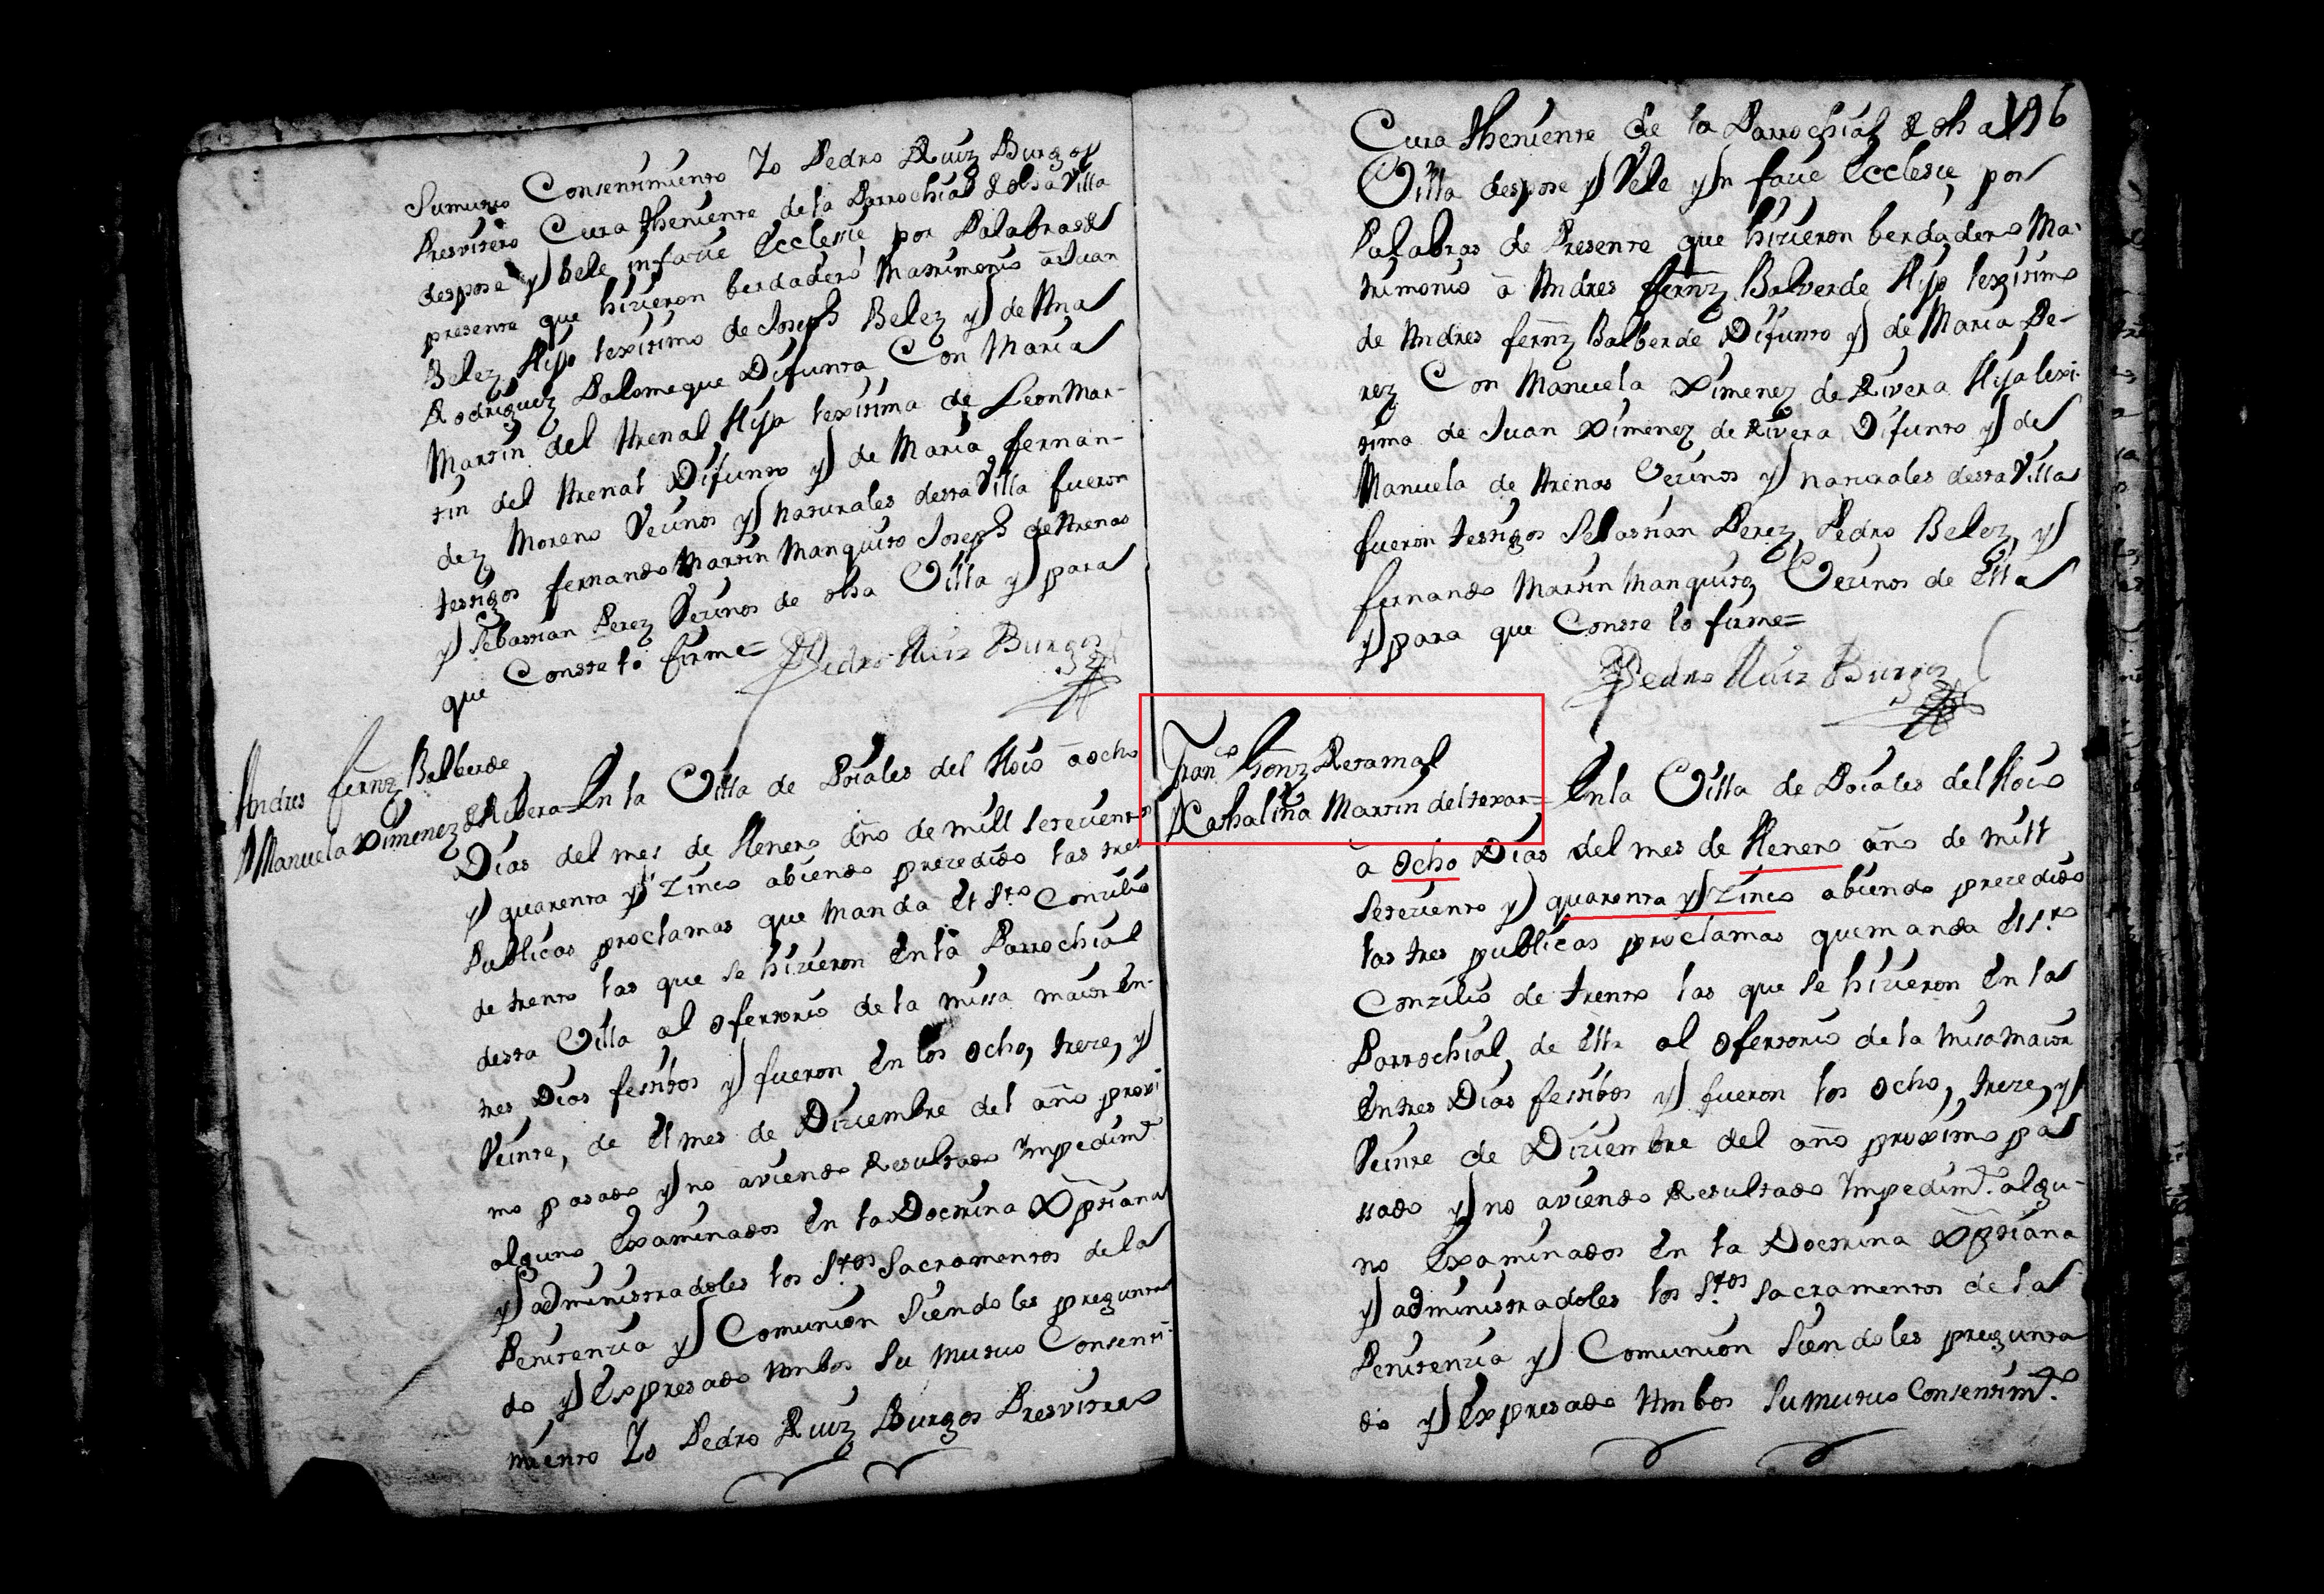 Sumutuo Consentimiento Yo Pedro Ruiz Burgos
Presvitero Cura theniente de la Parrochial de dha Villa
despose y bele in facie Ecclesie por Palabras de
presente que hizieron berdadero Matrimonio a Juan
Belez Hijo lexitimo de Joseph Belez y de Ana
Rodriguez Palomeque Difunta Con Maria
Martin del Arenal Hija lexitima de Leon Mar-
tin del Arenal Difunto y de Maria Fernan-
dez Moreno Vecinos y naturales desta Villa fueron
testigos fernando Martin Manquito Joseph de Arenas
y Sebastian Perez Vezinos de dha Villa y para
que Conste lo firme=
Pedro Ruiz Burgos
Andres fernz Balberde
Manuela Ximenez de Ribera=
En la Villa de Pozales del Hoio a ocho
Dias del mes de Henero año de mill setezientos
y quarenta y zinco abiendo prezedido las tres
Publicas proclamas que manda el Sto Conzilio
de trento las que se hizieron En la Parrochial
desta Villa al ofertorio de la missa maior En-
tres Dias festibos y fueron En los ocho, treze, y
Veinte, de el mes de Diziembre del año proxi
mo pasado y no aviendo Resultado Impedimto
alguno Examinados En la Doctrina Xptiana
y administradoles los Stos Sacramentos de la
Penitenzia y Comunion Siendoles pregunta
do y Expresado Ambos Su mutuo Consenti-
miento Yo Pedro Ruiz Burgos Presvitero
196
Cura theniente de la Parrochial de dha
Villa despose y Vele yn facie Ecclesie por
Palabras de Presente que hizieron berdadero Ma-
trimonio a Andres fernz Balverde Hijo lexitimo
de Andres fernz Balberde Difunto y de Maria Pe-
rez Con Manuela Ximenez de Rivera Hija lexi-
tima de Juan Ximenez de Rivera Difunto y de
Manuela de Arenas Vezinos y naturales desta Villa
fueron testigos Sebastian Perez, Pedro Belez, y
fernando Martin Manquito Vezinos de Ella
y para que Conste lo firme=
Pedro Ruiz Burgos
Franco Gonz Retamal
Kathalina Martin del texar=
En la Villa de Pozales del Hoio
a ocho Dias del mes de Henero año de mill
setezientos y quarenta y zinco abiendo prezedido
las tres publicas proclamas que manda el Sto
Conzilio de trento las que se hizieron En la
Parrochial, de Ella al ofertorio de la misa maior
En tres Dias festibos y fueron los ocho, treze, y
Veinte de Diziembre del año proximo pa
ssado y no aviendo Resultado Impedimto algu-
no Examinados En la Doctrina Xptiana
y administradoles los Stos Sacramentos de la
Penitenzia y Comunion Siendoles pregunta
do y Expresado Ambos Su mutuo Consentimto